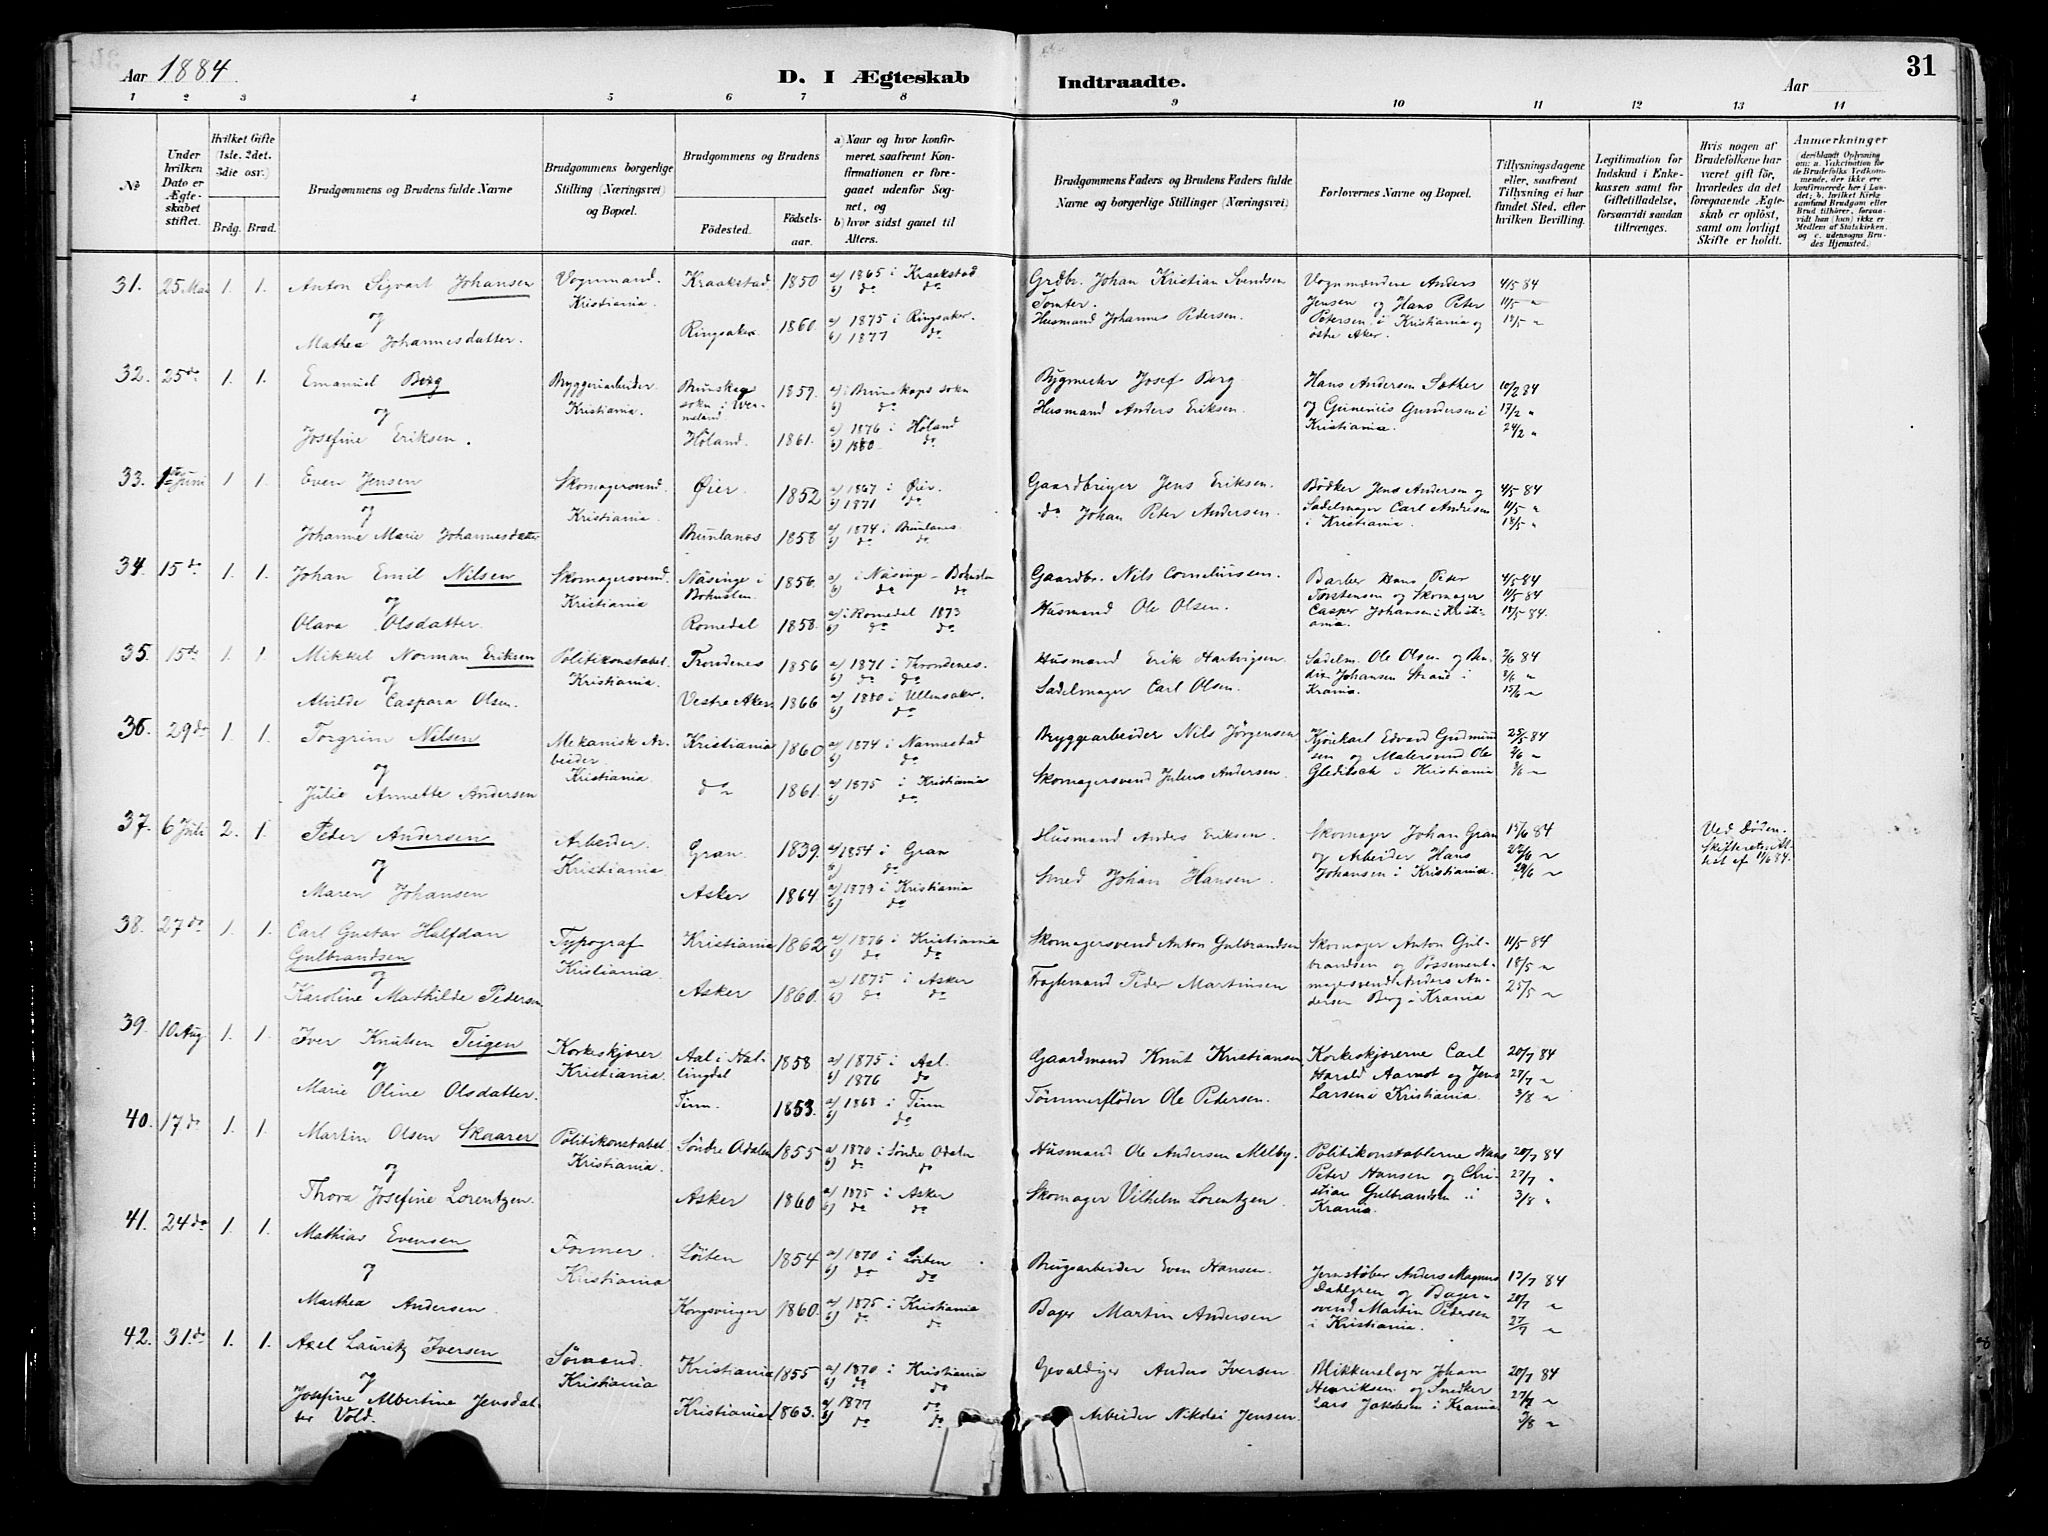 Aar 1884.
D. I Ægteskab Indtraadte.
Aar
31
1 2 3 4 5 6 7 8 9 10 11 12 13 14
№
Under hvilken Dato er Ægteskabet stiftet.
Hvilket Gifte (1ste, 2det, 3die osv.)
Brdg. Brud.
Brudgommens og Brudens fulde Navne
Brudgommens borgerlige Stilling (Næringsvei) og Bopæl.
Brudgommens og Brudens
Fødested.
Fødselsaar.
a) Naar og hvor konfirmeret, saafremt Konfirmationen er foregaaet udenfor Sognet, og
b) hvor sidst gaaet til Alters.
Brudgommens Faders og Brudens Faders fulde Navne og borgerlige Stillinger (Næringsvei)
Forlovernes Navne og Bopæl.
Tillysningsdagene eller, saafremt Tillysning ei har fundet Sted, efter hvilken Bevilling.
Legitimation for Indskud i Enkekassen samt for Giftetilladelse, forsaavidt saadan tiltrænges.
Hvis nogen af Brudefolkene har været gift før, hvorledes da det foregaaende Ægteskab er opløst, samt om lovligt Skifte er holdt.
Anmærkninger
31. 25 Mai 1. 1. Anton Sigvart Johansen Vognmand. Kristiania Kraakstad 1850 a) 1865 i Kraakstad b) do do Grdbr. Johan Kristian Svendsen Tomter. Vognmændene Anders Jensen og Hans Peter Petersen i Kristiania og østre Aker. 4/5 84 11/5 " 18/5 "
og
Mathea Johannesdatter. Ringsaker. 1860. a) 1875 i Ringsaker. b) 1877 do Husmand Johannes Pedersen.
32. 25 do 1. 1. Emanuel Berg Bryggeriarbeider. Kristiania. Brunskogs sokn i Wermeland 1859. a) i Brunskogs sokn b) do Bygmestr Josef Berg Hans Andersen Sæther og Gunerius Gundersen i Kristiania. 10/2 84 17/2 " 24/2 "
og
Josefine Eriksen. Höland. 1861. a) 1876 i Höland b) 1880 do Husmand Anders Eriksen.
33. 1ste Juni 1 1 Even Jensen Skomagersvend. Kristiania Øier. 1852 a) 1867 i Øier. b) 1871 do Gaardbruger Jens Eriksen. Bødker Jens Andersen og Sadelmager Carl Andresen i Kristiania. 4/5 84 11/5 " 18/5 "
og
Johanne Marie Johannesdatter Brunlanes 1858 a) 1874 i Brunlanes. b) do do do Johan Peter Andersen.
34. 15 do 1. 1. Johan Emil Nilsen Skomagersvend. Kristiania Näsinge i Bohuslen 1856. a) i Näsinge - Bohuslen b) do do Gaardbr. Nils Corneliussen. Barber Hans Peder Torstensen og Skomager Casper Johansen i Kristiania. 4/5 84 11/5 84 18/5 84.
og
Olava Olsdatter. Romedal 1858. a) i Romedal 1873 b) do do Husmand Ole Olsen.
35. 15 do 1. 1. Mikkel Norman Eriksen Politikonstabel. Kristiania. Trondenes 1856 a) 1871 i Throndenes. b) do do Husmand Erik Hartvigsen Sadelm. Ole Olsen og Bendix Johansen Strand i Krania. 2/6 84 8/6 " 15/6 "
og
Alvilde Caspara Olsen. Vestre Aker 1866 a) 1880 i Ullensaker. b) do Sadelmager Carl Olsen.
36. 29 do 1. 1. Torgrim Nilsen Mekanisk Arbeider Kristiania Kristiania 1860 a) 1874 i Nannestad b) do Bryggearbeider Nils Jørgensen Edvard Gudmundsen og Malersvend Ole Gleditsch i Kristiania 25/5 84 2/6 " 8/6 "
og
Julie Annette Andersen do 1861. a) 1875 i Kristiania b) do Skomagersvend Julius Andersen.
37. 6 Juli 2. 1. Peder Andersen Arbeider. Kristiania Gran. 1839. a) 1854 i Gran b) do Husmand Anders Eriksen. Skomager Johan Gran og Arbeider Hans Johansen i Kristiania. 15/6 84 22/6 " 29/6 " Ved Døden. Skifteretsattest af 11/6 84.
og
Maren Johansen Asker 1864 a) 1879 i Kristiania b) do Smed Johan Hansen.
38. 27 do 1. 1. Carl Gustav Halfdan Gulbrandsen Typograf Kristiania. Kristiania 1862 a) 1876 i Kristiania b) do do Skomagersvend Anton Gulbrandsen Skomager Anton Gulbrandsen og Possementmagersvend Anders Andersen Berg i Krania 11/5 84 18/5 " 25/5 "
og
Karoline Mathilde Pedersen Asker 1860. a) 1875 i Asker b) do do Peder Martinsen
39. 10 Aug 1. 1. Iver Knutsen Teigen Korkeskjærer Kristiania. Aal i Hallingdal 1858 a) 1875 i Aal. b) 1876 do Gaardmand Knut Kristiansen Korkeskjærerne Carl Harald Aamot og Jens Larsen i Kristiania. 20/7 84 27/7 " 3/8 "
og
Marie Oline Olsdatter. Tinn. 1853. a) 1868 i Tinn b) do Tømmerfløder Ole Pedersen.
40. 17 do 1. 1. Martin Olsen Skaarer Politikonstabel Kristiania. Söndre Odalen 1855 a) 1870 i Söndre Odalen b) do do Husmand Ole Andersen Melby. Politikonstablerne Hans Peter Hansen og Christian Gulbrandsen i Krania. 20/7 84 27/7 " 3/8 "
og
Thora Josefine Lorentzen. Asker 1860 a) 1875 i Asker b) do do Skomager Vilhelm Lorentzen.
41. 24 do 1. 1. Mathias Evensen Former. Kristiania Löiten 1854 a) 1870 i Löiten b) do do Brugsarbeider Even Hansen. Jernstøber Anders Magnus Dahlgren og Bagersvend Martin Pedersen i Kristiania. 13/7 84 20/7 " 27/7 "
og
Marthea Andersen. Kongsvinger 1860. a) 1875 i Kristiania b) do do Bager Martin Andersen
42. 31. do 1. 1. Axel Lauritz Iversen Sömand. Kristiania Kristiania 1855 a) 1870 i Kristiania b) do do Gevaldiger Anders Iversen. Johan Henriksen og Snedker Lars Jakobsen i Krania 20/7 84 27/7 " 3/8 "
og
Josefine Albertine Jensdatter Vold. Kristiania 1863. a) 1877 do b) do do Arbeider Nikolai Jensen.